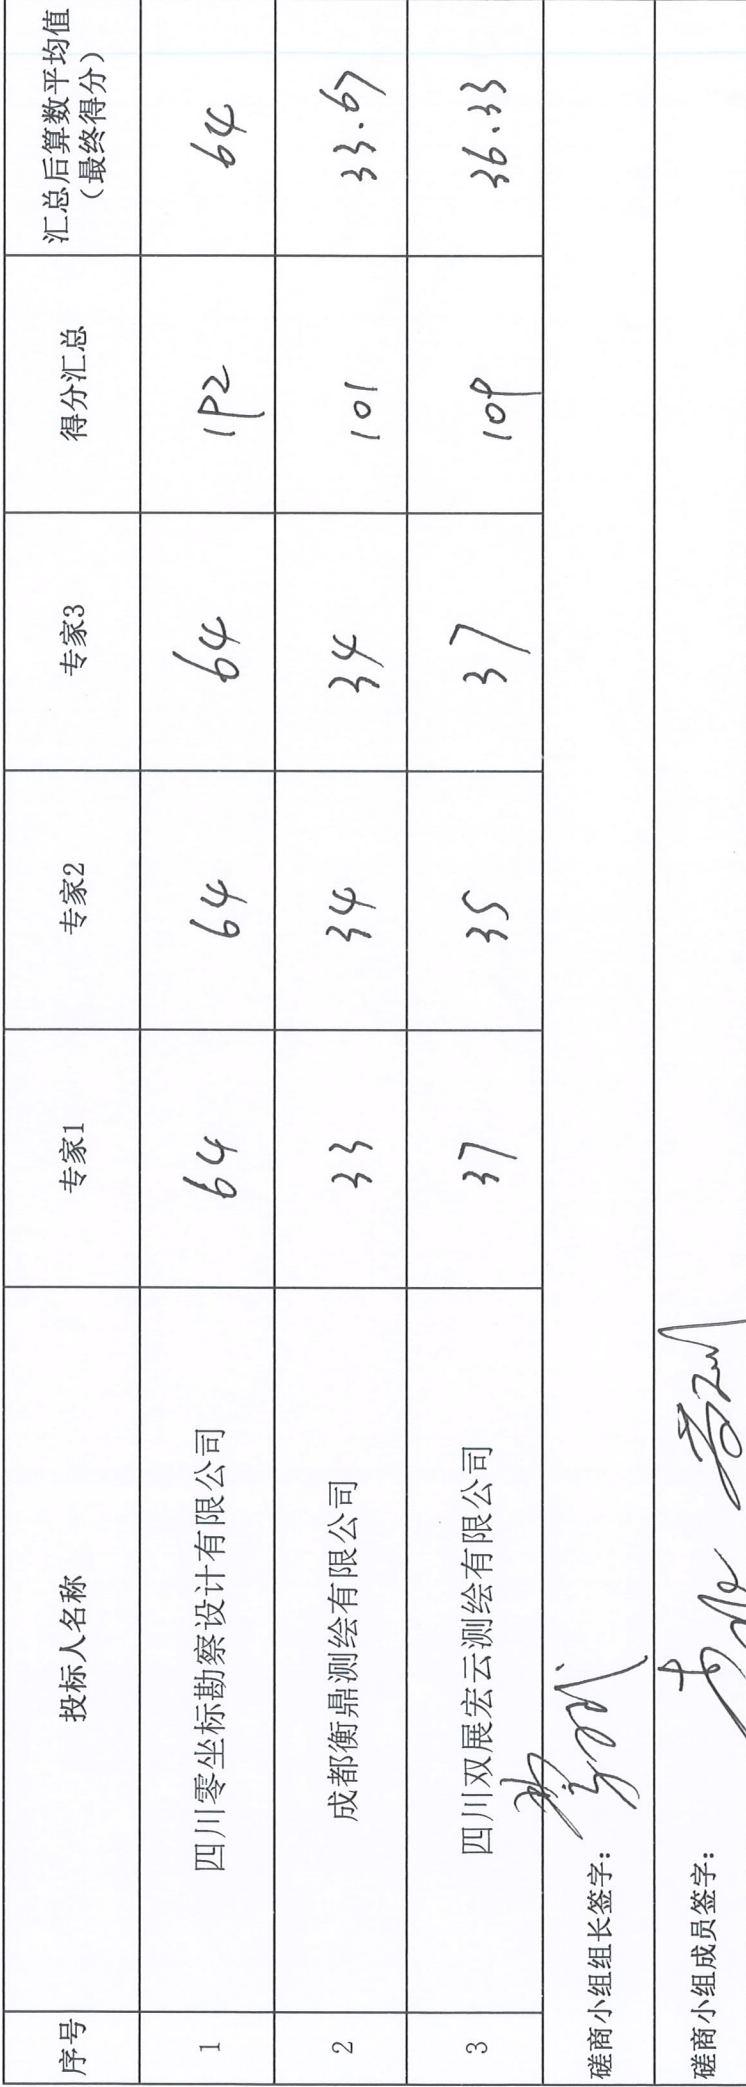 序号 投标人名称 专家1 专家2 专家3 得分汇总 汇总后算数平均值
（最终得分）
1 四川零坐标勘察设计有限公司 64 64 64 192 64
2 成都衡鼎测绘有限公司 33 34 34 101 33.67
3 四川双展宏云测绘有限公司 37 35 37 109 36.33
磋商小组组长签字：
磋商小组成员签字：